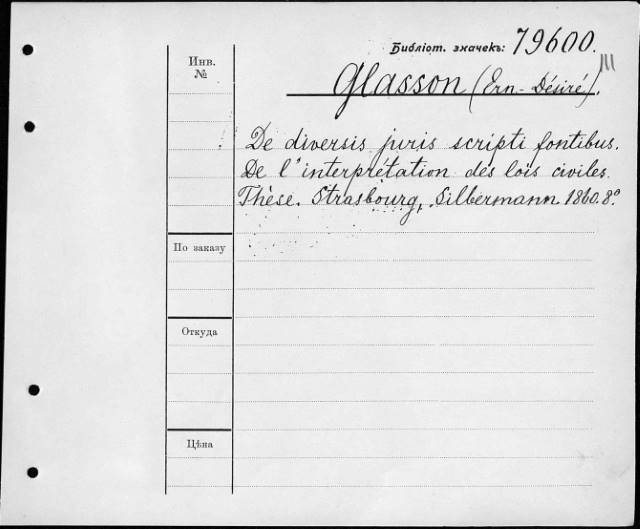 Библіот. значекъ: 79600.
III
Инв. №
Glasson (Ern-Désiré).
De diversis juris scripti fontibus.
De l'interprétation des lois civiles.
Thèse. Strasbourg, Silbermann. 1860. 8º
По заказу
Откуда
Цѣна